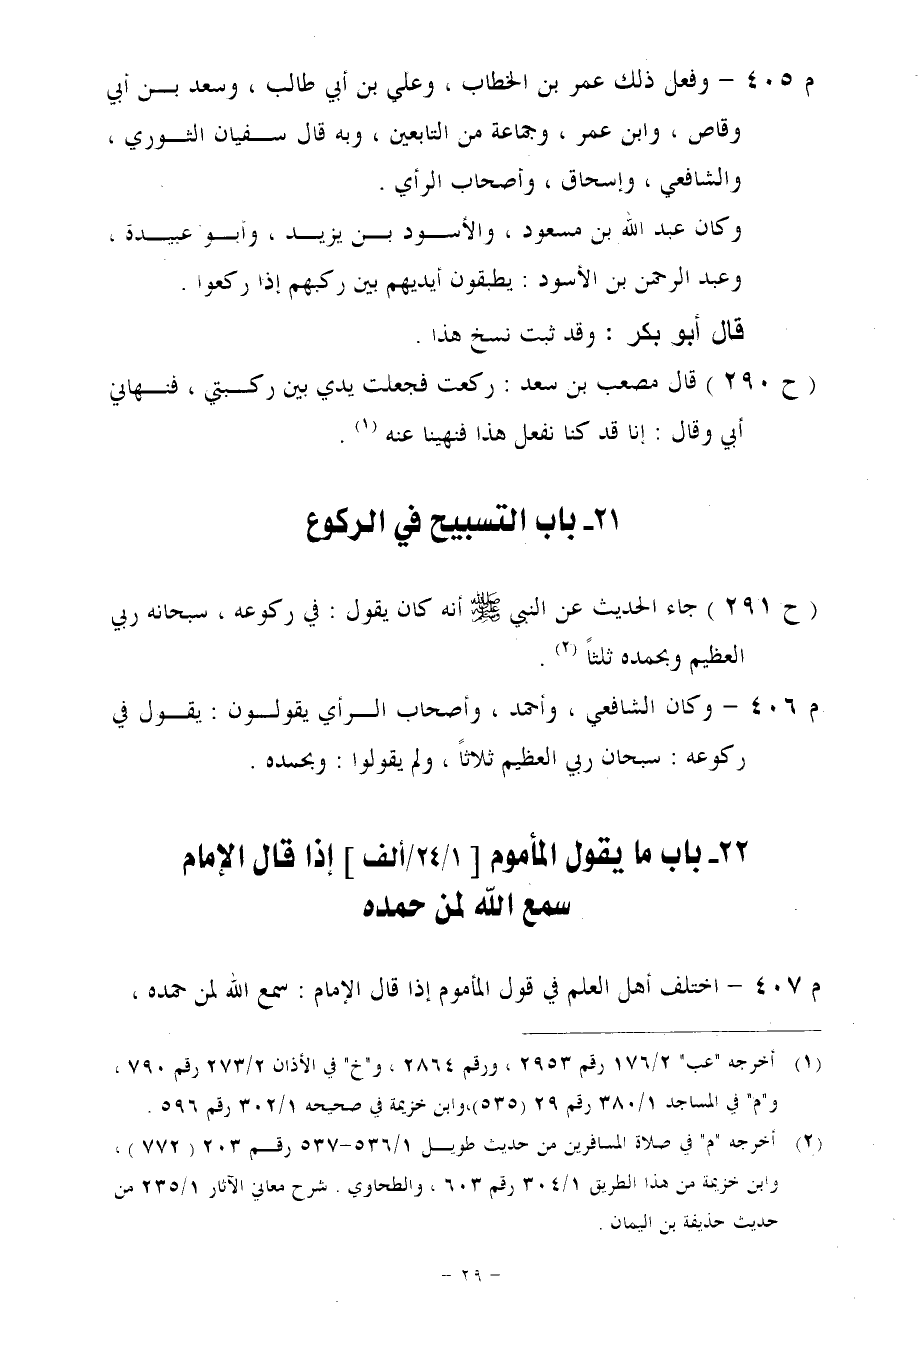 م ٤٠٥ – وفعل ذلك عمر بن الخطاب ، وعلي بن أبي طالب ، وسعد بـــن أبي
وقاص ، وابن عمر ، وجماعة من التابعين ، وبه قال ســفيان الثــوري ،
والشافعي ، وإسحاق ، وأصحاب الرأي .
وكان عبد الله بن مسعود ، والأســـود بـــن يزيـــد ، وأبـــو عبيـــدة ،
وعبد الرحمن بن الأسود : يطبقون أيديهم بين ركبهم إذا ركعوا .
قال أبو بكر : وقد ثبت نسخ هذا .
( ح ٢٩٠ ) قال مصعب بن سعد : ركعت فجعلت يدي بين ركـــبتي ، فنـــهاني
أبي وقال : إنا قد كنا نفعل هذا فنهينا عنه (١) .
٢١ـ باب التسبيح في الركوع
( ح ٢٩١ ) جاء الحديث عن النبي ﷺ أنه كان يقول : في ركوعه ، سبحانه ربي
العظيم وبحمده ثلثاً (٢) .
م ٤٠٦ – وكان الشافعي ، وأحمد ، وأصحاب الـــرأي يقولـــون : يقـــول في
ركوعه : سبحان ربي العظيم ثلاثاً ، ولم يقولوا : وبحمده .
٢٢ـ باب ما يقول المأموم [ ٢٤/١/ألف ] إذا قال الإمام
سمع الله لمن حمده
م ٤٠٧ – اختلف أهل العلم في قول المأموم إذا قال الإمام : سمع الله لمن حمده ،
(١) أخرجه "عب" ١٧٦/٢ رقم ٢٩٥٣ ، ورقم ٢٨٦٤ ، و"خ" في الأذان ٢٧٣/٢ رقم ٧٩٠ ،
و"م" في المساجد ٣٨٠/١ رقم ٢٩ (٥٣٥)،وابن خزيمة في صحيحه ٣٠٢/١ رقم ٥٩٦ .
(٢) أخرجه "م" في صلاة المسافرين من حديث طويـــل ٥٣٦/١–٥٣٧ رقـــم ٢٠٣ ( ٧٧٢ ) ،
وابن خزيمة من هذا الطريق ٣٠٤/١ رقم ٦٠٣ ، والطحاوي . شرح معاني الآثار ٢٣٥/١ من
حديث حذيفة بن اليمان .
– ٢٩ –